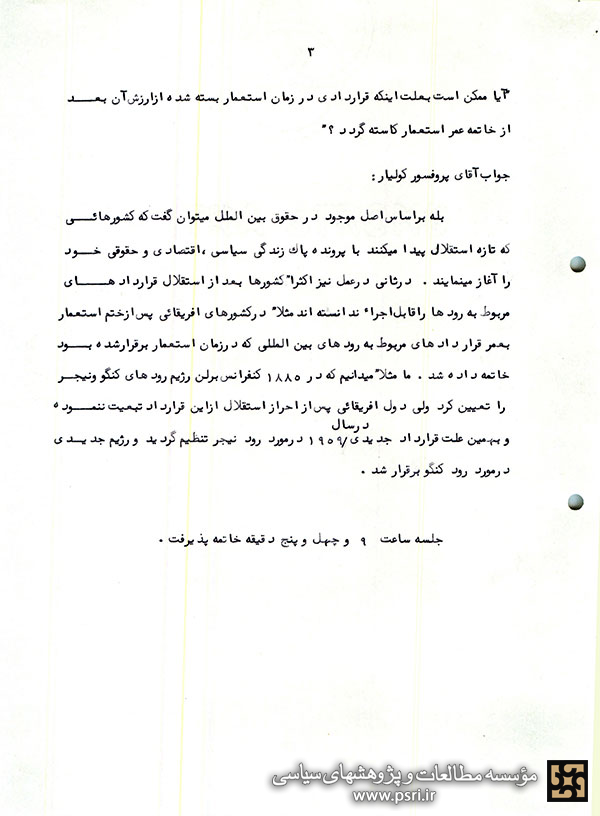 ۳
"آیا ممکن است بعلت اینکه قراردادی در زمان استعمار بسته شده از ارزش آن بعد
از خاتمه عمر استعمار کاسته گردد ؟"
جواب آقای پروفسور کولیار :
بله براساس اصل موجود در حقوق بین الملل میتوان گفت که کشورهائی
که تازه استقلال پیدا میکنند با پرونده پاک زندگی سیاسی ، اقتصادی و حقوقی خود
را آغاز مینمایند . در ثانی در عمل نیز اکثرا" کشورها بعد از استقلال قراردادهای
مربوط به رودها را قابل اجراء ندانسته اند مثلا" در کشورهای افریقائی پس از ختم استعمار
بعمر قراردادهای مربوط به رودهای بین المللی که در زمان استعمار برقرار شده بود
خاتمه داده شد . ما مثلا" میدانیم که در ۱۸۸۵ کنفرانس برلن رژیم رودهای کنگو و نیجر
را تعیین کرد ولی دول افریقائی پس از احراز استقلال از این قرارداد تبعیت ننموده
در سال
و بهمین علت قرارداد جدیدی/ ۱۹۵۹ در مورد رود نیجر تنظیم گردید و رژیم جدیدی
در مورد رود کنگو برقرار شد .
جلسه ساعت ۹ و چهل و پنج دقیقه خاتمه پذیرفت .
مؤسسه مطالعات و پژوهشهای سیاسی
www.psri.ir